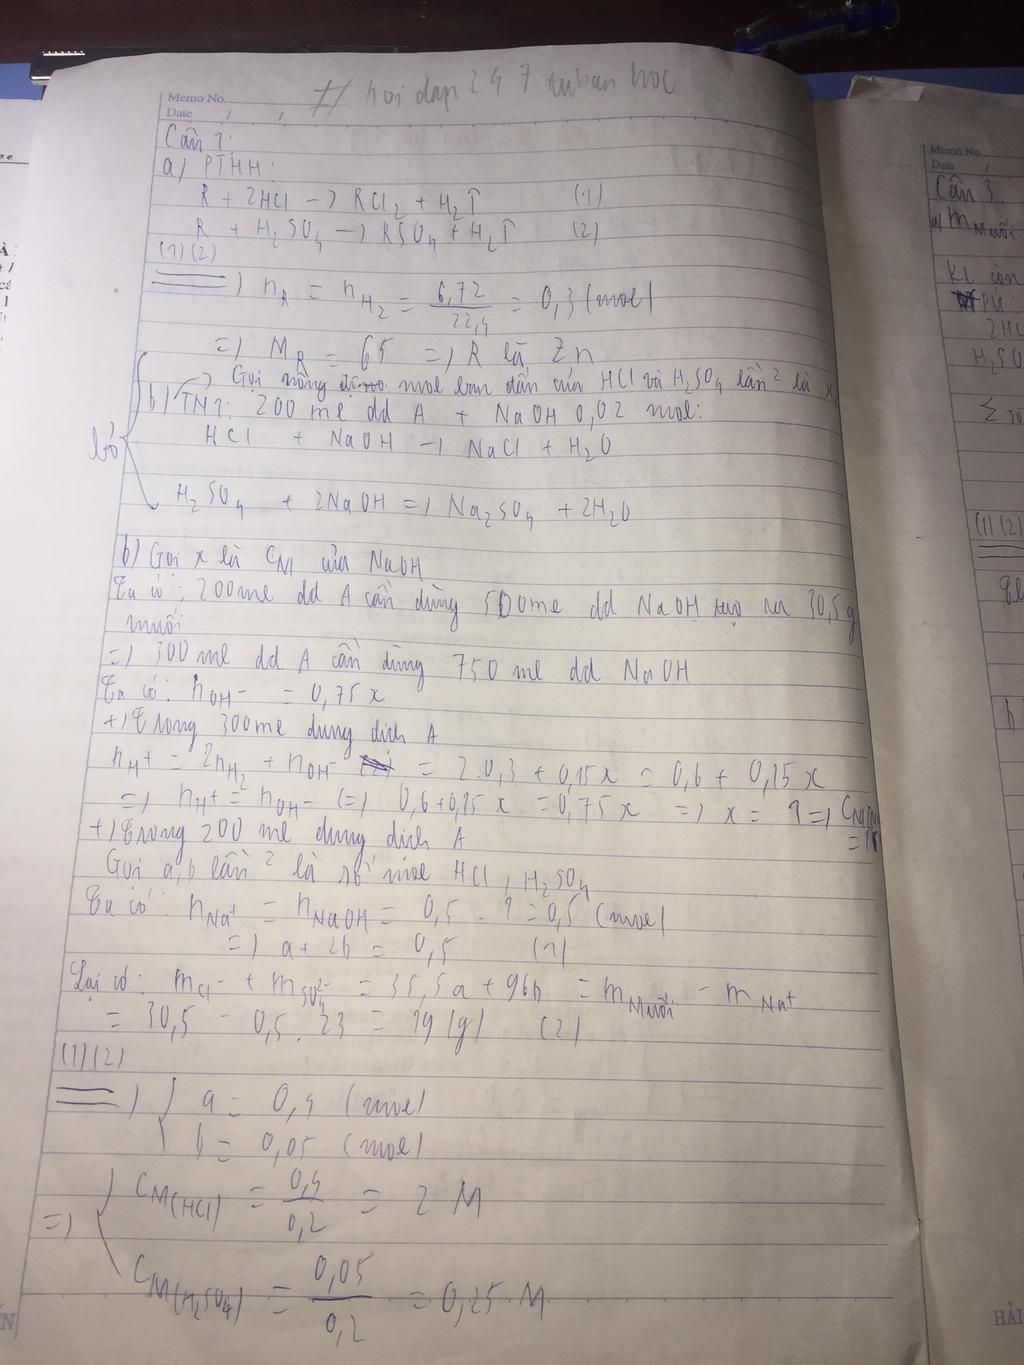 Memo No.
Date / /
# hoi dap 247 tu han hoc
Câu 1:
a) PTHH:
R + 2HCl -> RCl2 + H2↑ (1)
R + H2SO4 -> RSO4 + H2↑ (2)
(1)(2)
=> nR = nH2 = 6,72/22,4 = 0,3 (mol)
=> MR = 65 => R là Zn
Gọi nồng mol ban đầu của HCl và H2SO4 lần 2 là x
b) TN1: 200 ml dd A + NaOH 0,02 mol:
HCl + NaOH -> NaCl + H2O
bỏ
H2SO4 + 2NaOH => Na2SO4 + 2H2O
b) Gọi x là CM của NaOH
Ta có: 200ml dd A cần dùng 500ml dd NaOH tạo ra 30,5g
muối
=> 300 ml dd A cần dùng 750 ml dd NaOH
Ta có: nOH- = 0,75x
+) Trong 300ml dung dịch A
nH+ = 2nH2 + nOH- = 2.0,3 + 0,15x = 0,6 + 0,15x
=> nH+ = nOH- (=) 0,6+0,15x = 0,75x => x = 1 =>
+) Trong 200 ml dung dịch A
Gọi a,b lần 2 là số mol HCl, H2SO4
Ta có: nNa+ = nNaOH = 0,5 . 1 = 0,5 (mol)
=> a + 2b = 0,5 (1)
Lại có: mCl- + mSO4^2- = 35,5a + 96b = mMuối - mNa+
= 30,5 - 0,5.23 = 19 (g) (2)
(1)(2)
=> { a = 0,4 (mol)
b = 0,05 (mol)
=> { CM(HCl) = 0,4/0,2 = 2 M
CM(H2SO4) = 0,05/0,2 = 0,25 M
Memo No.
Date /
Câu 3:
a) mMuối
KL còn
PU:
2HC
H2SO
(1)(2)
HẢI